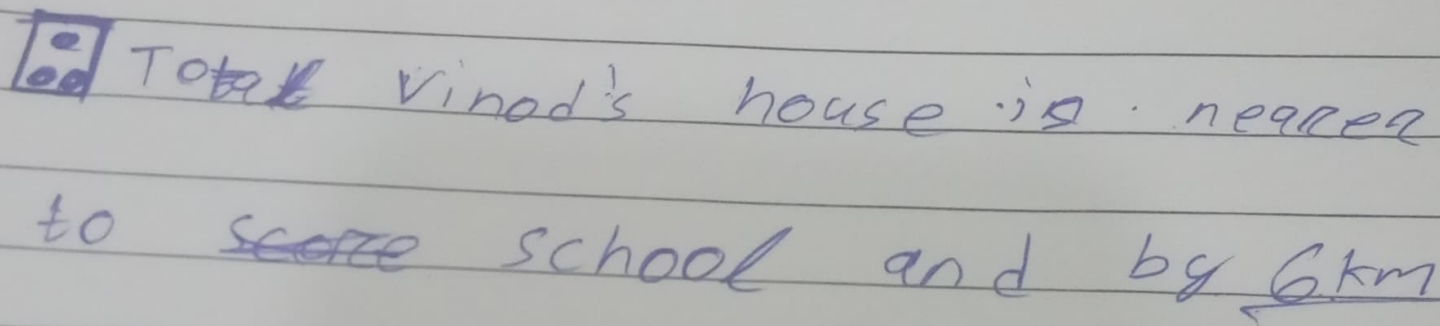 ∴ Total Vinod's house is nearer
to score school and by 6km